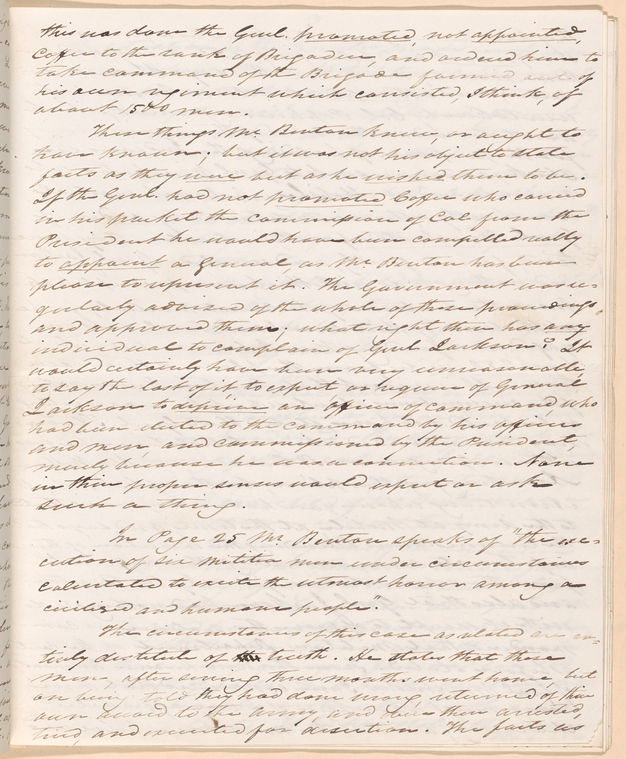 this was done the Genl. promoted, not appointed,
Coffee to the rank of Brigadier, and ordered him to
take command of the Brigade formed out of
his own regiment which consisted, I think, of
about 1500 men.
These things Mr. Benton knew, or ought to
have known; but it was not his object to state
facts as they were but as he wished them to be.
If the Genl. had not promoted Coffee who carried
in his pocket the commission of Col. from the
President he would have been compelled really
to appoint a General, as Mr. Benton has been
please to represent it. The Government was re-
gularly advised of the whole of these proceedings
and approved them; what right then has any
individual to complain of Genl Jackson? It
would certainly have been very unreasonable,
to say the last of it to expect or require of General
Jackson to deprive an officer of command, who
had been elected to the command by his officers
and men and commissioned by the President,
merely because he was a connection. None
in their proper senses would expect or ask
such a thing.
In Page 25 Mr. Benton speaks of "The exe-
cution of six Militia men under circumstances
calculated to excite the utmost horror among a
civilized and humane people".
The circumstances of this case as stated are en-
tirely destitute of truth. He states that these
men, after serving three months went home, but
on being told they had done wrong returned of their
own accord to the army, and were then arrested,
tried, and executed for desertion. The facts as